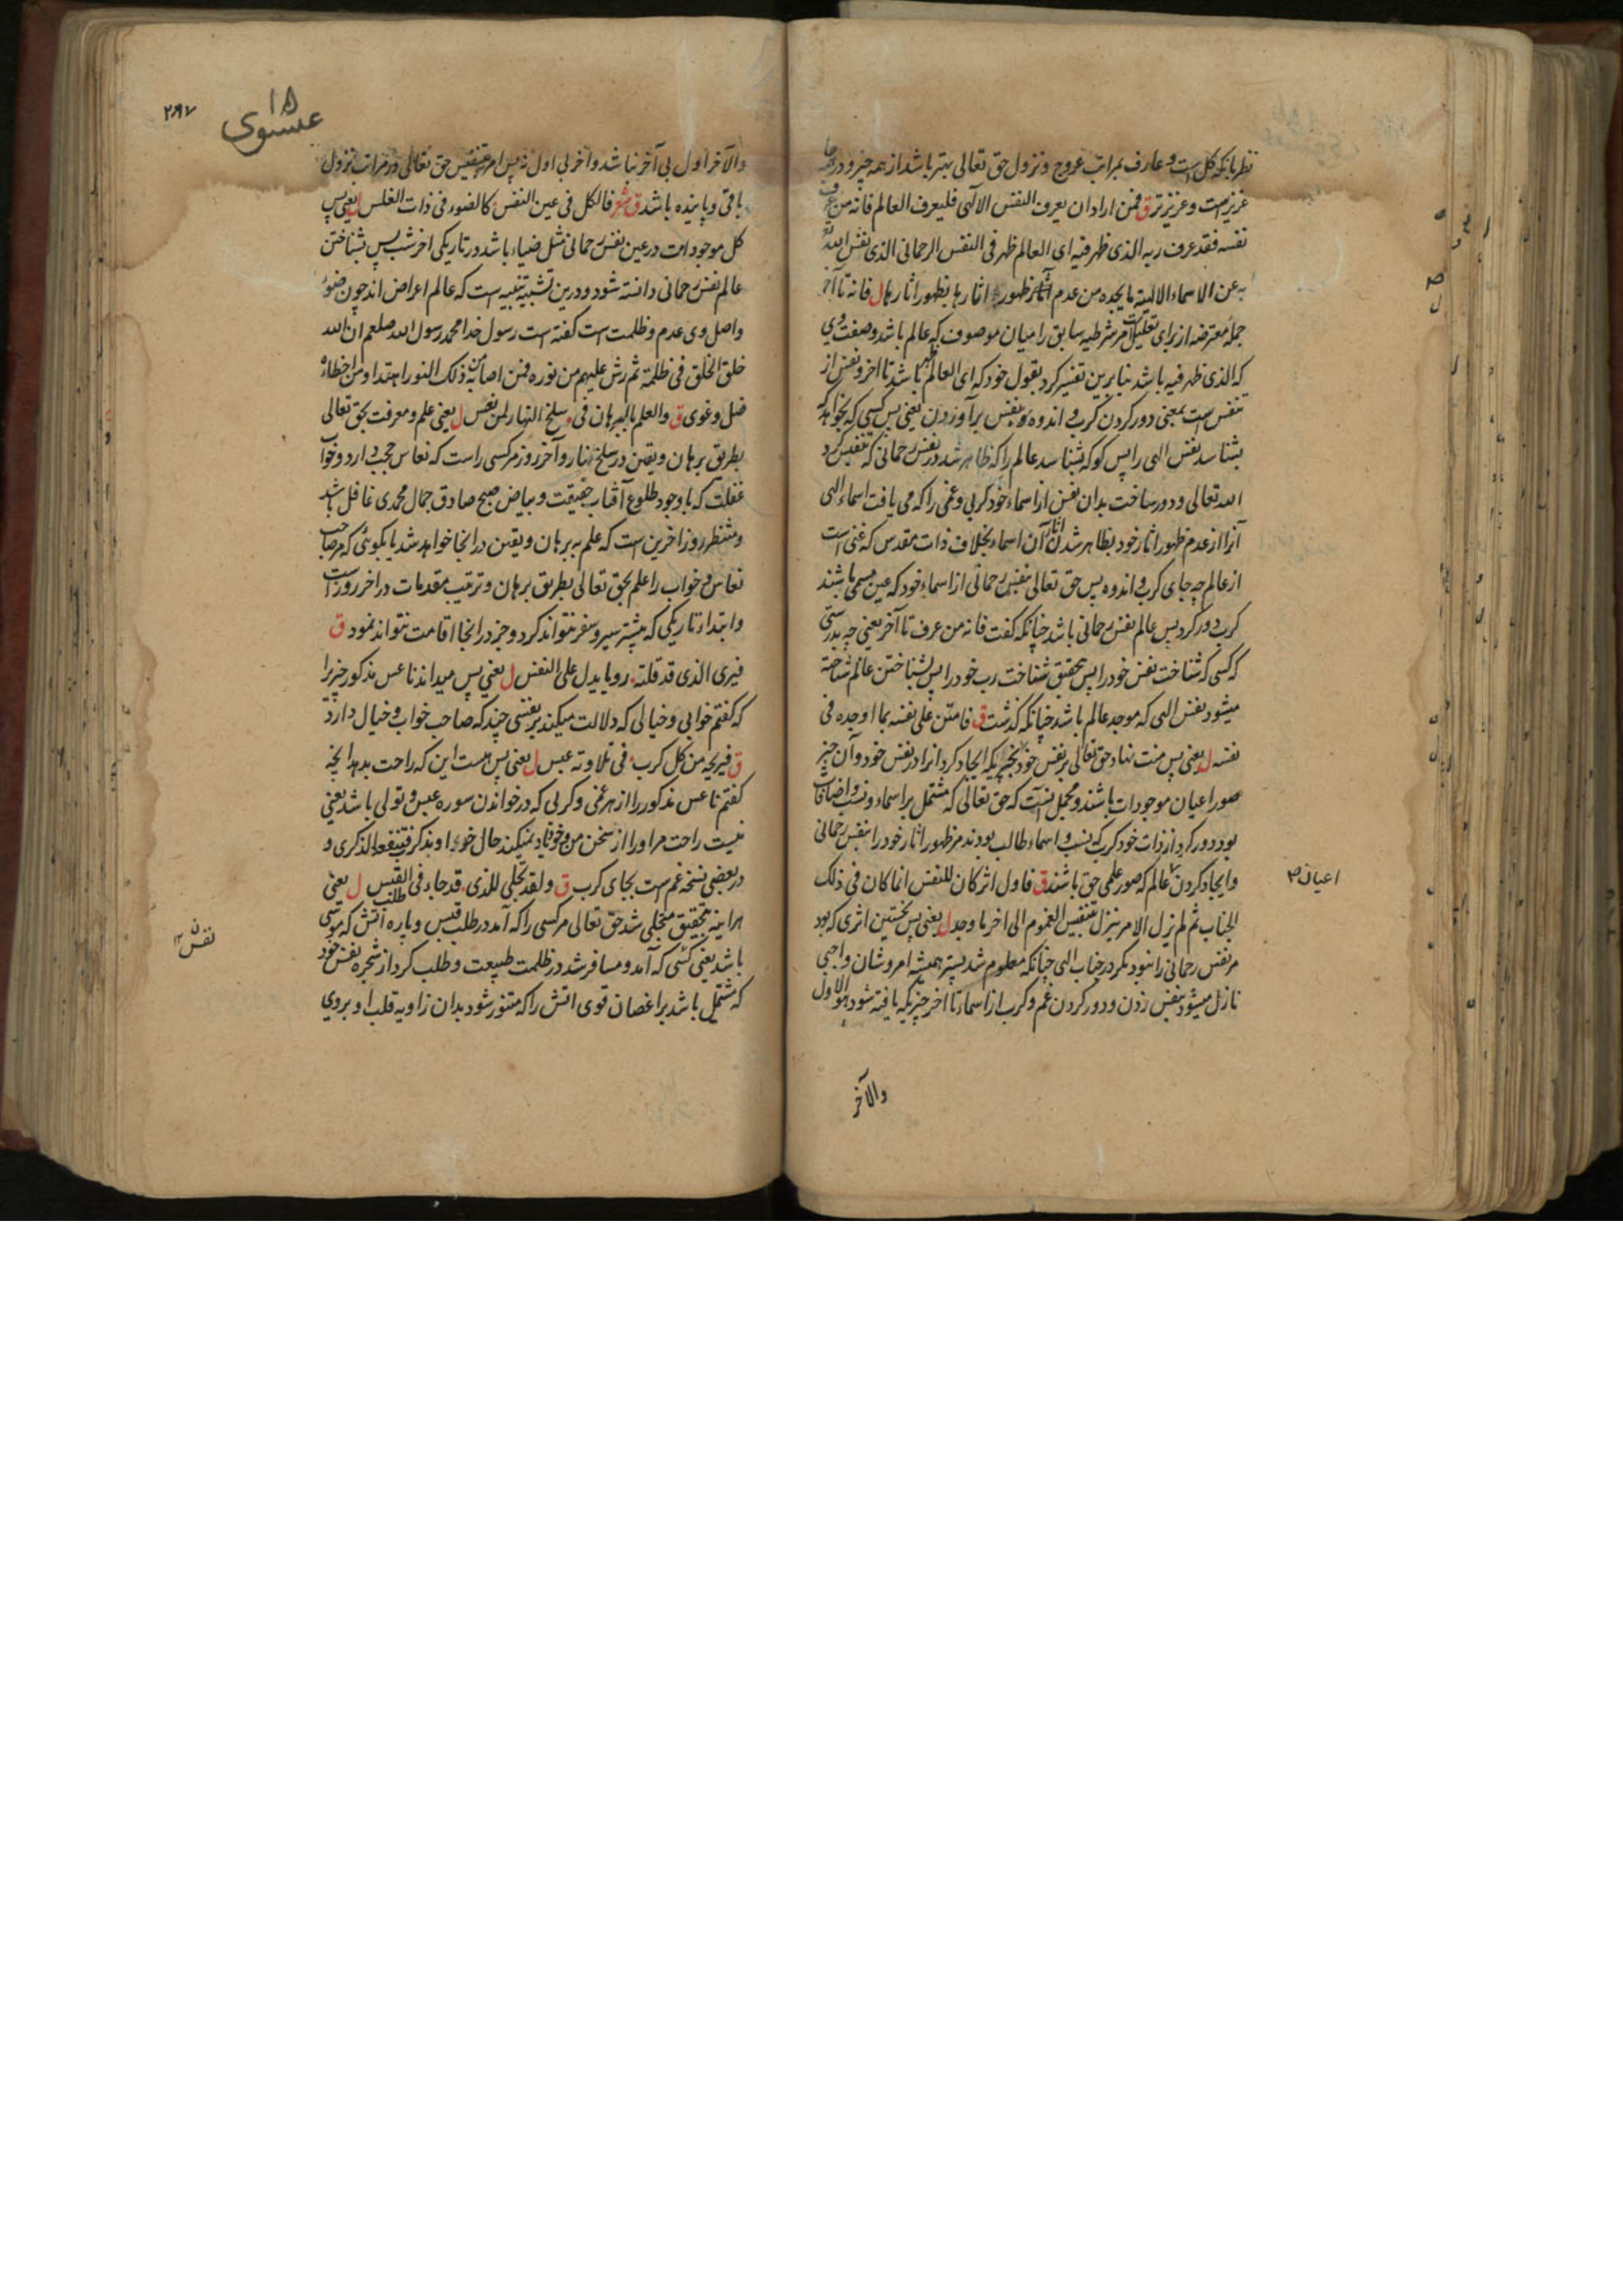 نظر بآنکه کل است و عارف بمراتب عروج و نزول حق تعالی بهتر باشد از همه چیز و در همه جا
عزیز است و عزیزتر ق فمن اراد ان یعرف النفس الالهی فلیعرف العالم فانه من عرف
نفسه فقد عرف ربه الذی ظهر فیه ای العالم ظهر فی النفس الرحمانی الذی نفس الله
به عن الاسماء الالهیة ما یجده من عدم ظهور آثارها بظهور آثارها ل فانه تا آخر
جمله معترضه از برای تعلیل مر شرطیه سابق را میان موصوف که عالم باشد و صفت وی
که الذی ظهر فیه باشد بنابرین تفسیر کرد بقول خود که ای العالم ظهر باشد تا اخر و نفس از
تنفس است بمعنی دور کردن کرب و اندوه و نفس برآوردن یعنی پس کسی که بخواهد که
بشناسد نفس الهی را پس کو که بشناسد عالم را که ظاهر شد در نفس رحمانی که تنفیس کرد
الله تعالی و دور ساخت بدان نفس از اسماء خود کربی و غمی را که می یافت اسماء الهی
آنرا از عدم ظهور اثار خود بظاهر شدن اثار آن اسماء بخلاف ذات مقدس که غنی است
از عالم چه جای کرب و اندوه پس حق تعالی بنفس رحمانی از اسماء خود که عین مسمی باشند
کرب دور کرد پس عالم نفس رحمانی باشد چنانکه گفت فانه من عرف تا آخر یعنی چه بدرستی
که کسی که شناخت نفس خود را پس بتحقیق شناخت رب خود را پس بشناختن عالم شناخته
میشود نفس الهی که موجد عالم باشد چنانکه گذشت ق فامتن علی نفسه بما اوجده فی
نفسه ل یعنی پس منت نهاد حق تعالی بر نفس خود بچیزیکه ایجاد کرد انرا در نفس خود و آن چیز
صور اعیان موجودات باشند و مجمل اینست که حق تعالی که مشتمل بر اسماء و نسب و اضافات
بود دور کرد از ذات خود کرب که نسب و اسماء طالب بودند مر ظهور اثار خود را بنفس رحمانی
و ایجاد کردن عالم که صور علمی حق باشند ق فاول اثر کان للنفس انما کان فی ذلک
الجناب ثم لم یزل الامر ینزل بتنفیس الغموم الی اخر ما وجد ل یعنی پس نخستین اثری که بود
مر نفس رحمانی را نبود مگر در جناب الهی چنانکه معلوم شد پستر همیشه امر و شان واجبی
نازل میشود بنفس زدن و دور کردن غم و کرب از اسماء تا اخر چیزیکه یافته شود هو الاول
اعیان ص
والآخر
۲۸۷
۱۵
عیسوی
والآخر اول بی آخر نباشد و آخر بی اول نه پس امر بتنفیس حق تعالی در مراتب نزول
باقی و پاینده باشد ق شعر فالکل فی عین النفس کالضوء فی ذات الغلس ل یعنی پس
کل موجودات در عین نفس رحمانی مثل ضیاء باشد در تاریکی اخر شب پس بشناختن
عالم نفس رحمانی دانسته شود و درین تشبیه تنبیه است که عالم اعراض اند چون ضوء
واصل وی عدم و ظلمت است گفته است رسول خدا محمد رسول الله صلعم ان الله
خلق الخلق فی ظلمة ثم رش علیهم من نوره فمن اصابه من ذلک النور اهتدا و من اخطاه
ضل و غوی ق والعلم بالبرهان فی سلخ النهار لمن نعس ل یعنی علم و معرفت بحق تعالی
بطریق برهان و یقین در سلخ نهار و آخر روز مر کسی راست که نعاس حجب دارد و خواب
غفلت که با وجود طلوع آفتاب حقیقت و بیاض صبح صادق جمال محمدی غافل باشد
و منتظر روز اخرین است که علم به برهان و یقین در انجا خواهد شد یا بگوئی که مر صاحب
نعاس و خواب را علم بحق تعالی بطریق برهان و ترتیب مقدمات در اخر روز است
و ابتداء تاریکی که بیشتر سیر و سفر نتواند کرد و جز در انجا اقامت نتواند نمود ق
فیری الذی قد قلته رویا یدل علی النفس ل یعنی پس میداند ناعس مذکور چیزیرا
که گفتم خوابی و خیالی که دلالت میکند بر نفسی چند که صاحب خواب و خیال دارد
ق فیریحه من کل کرب فی تلاوته عبس ل یعنی پس هست این که راحت بدهد انچه
گفتم ناعس مذکور را از هر غمی و کربی که در خواندن سوره عبس و تولی باشد یعنی
نیست راحت مر او را از سخن من و خوناد نمیکند حال خود او یذکر فتنفعه الذکری و
در بعضی نسخه غم است بجای کرب ق ولقد تجلی للذی قد جاء فی طلب القبس ل یعنی
هر اینه بتحقیق متجلی شد حق تعالی مر کسی را که آمد در طلب قبس و پاره آتش که موسی
باشد یعنی کسی که آمد و مسافر شد در ظلمت طبیعت و طلب کرد از شجره نفس خود
که مشتمل باشد بر اغصان قوی اتش را که متنور شود بدان زاویه قلب او بروی
نفس ن